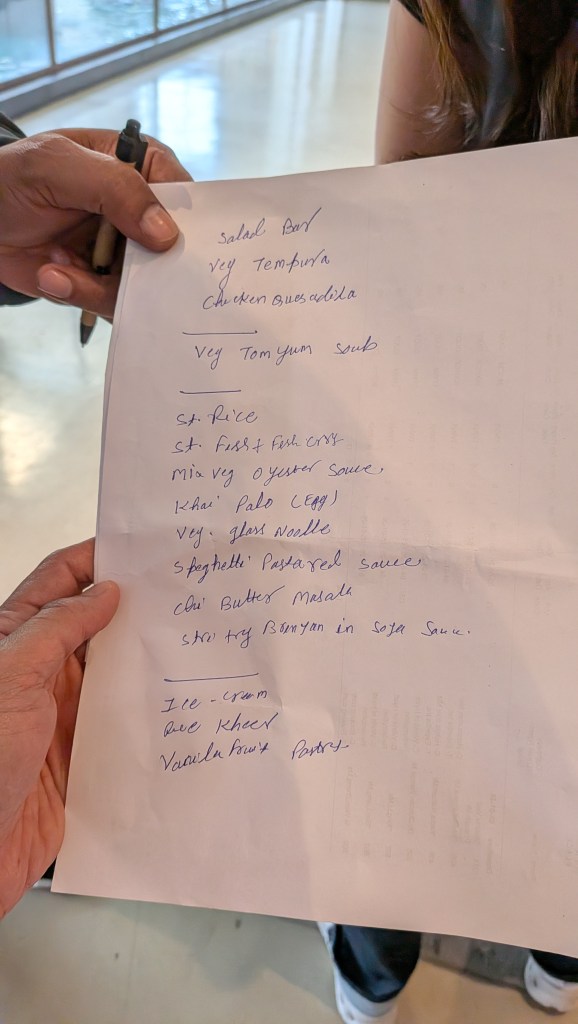 Salad Bar
Veg Tempura
Chicken Quesadila
Veg Tom yum Soub
St. Rice
St. Fish & Fish Crry
Mix veg oyester Sauce.
Khai Palo (Egg)
Veg. glass Noodle
Speghetti Pasta red sauce
Chi Butter Masala
in Soya Sauce.
Ice - Cream
Rice Kheer
Vanila fruit Pastry